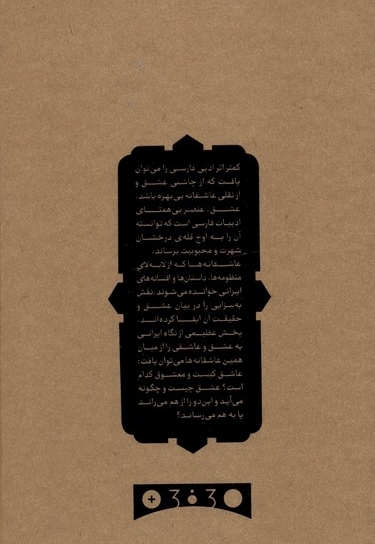 کمتر اثر ادبی فارسی را می‌توان
یافت که از چاشنی عشق و
از نقلی عاشقانه بی‌بهره باشد.
عشق، عنصر بی‌همتای
ادبیات فارسی است که توانسته
آن را به اوج قله‌ی درخشان
شهرت و محبوبیت برساند.
عاشقانه‌ها که از لابه‌لای
منظومه‌ها، داستان‌ها و افسانه‌های
ایرانی خوانده می‌شوند، نقش
به‌سزایی را در بیان عشق و
حقیقت آن ایفا کرده‌اند.
بخش عظیمی از نگاه ایرانی
به عشق و عاشقی را از میان
همین عاشقانه‌ها می‌توان یافت:
عاشق کیست و معشوق کدام
است؟ عشق چیست و چگونه
می‌آید و این دو را از هم می‌راند
یا به هم می‌رساند؟